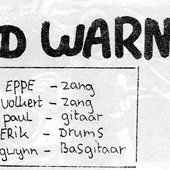 D WARN
EPPE - zang
volkert - zang
paul - gitaar
ERik - DRUMS
gwynn - Basgitaar